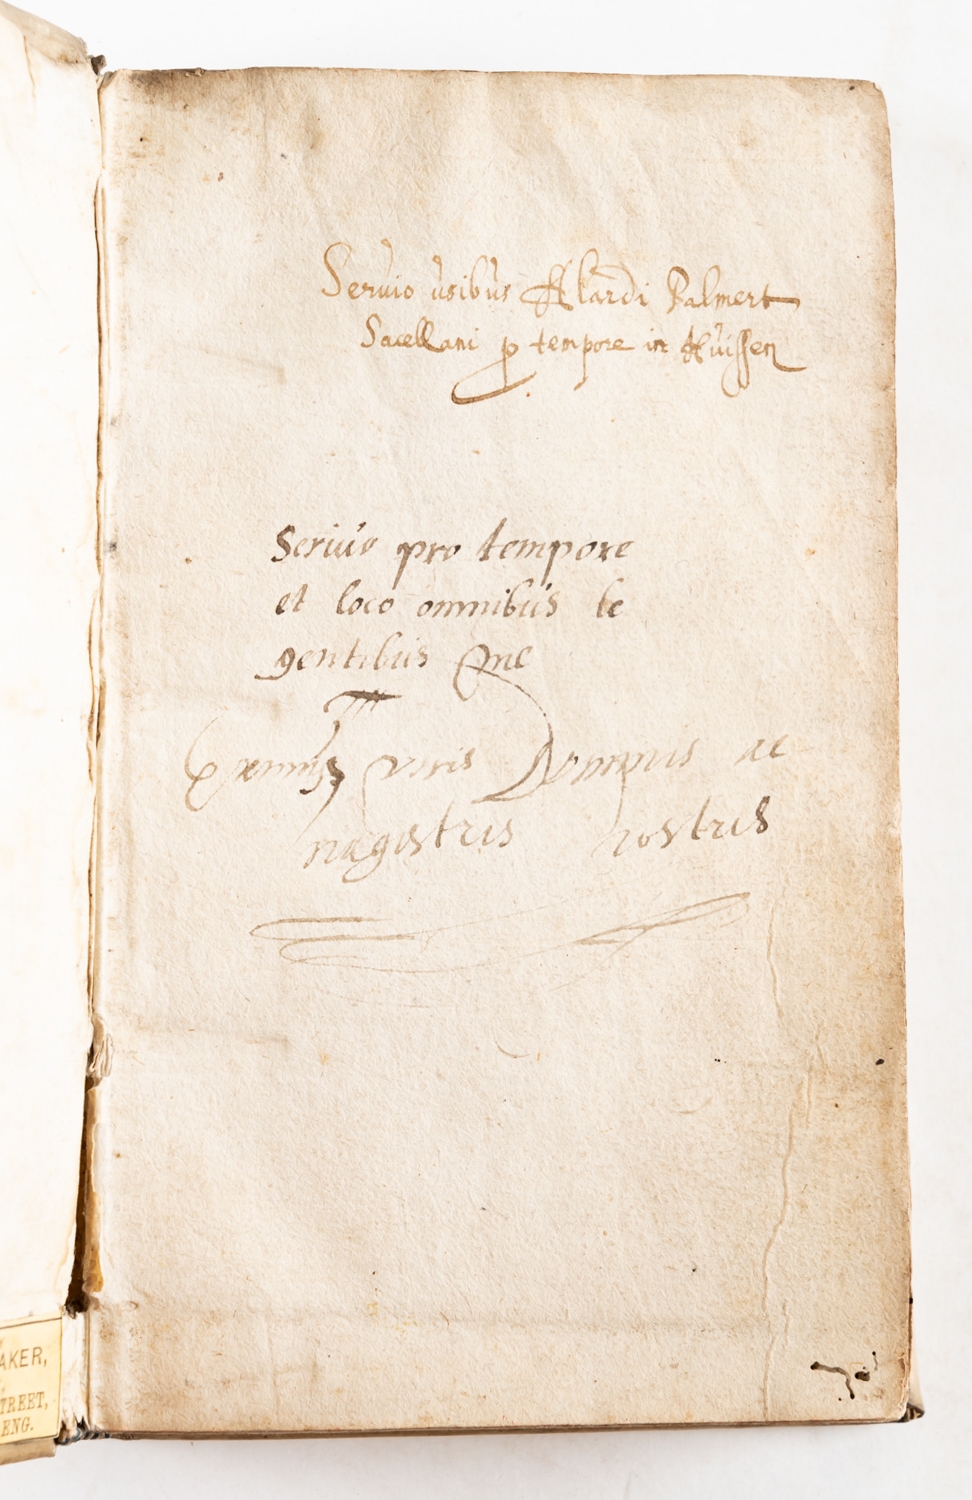 Servio usibus Alardi Balmert
Sacellani p tempore in Huissen
Seruio pro tempore
et loco omnibus le
gentibus me
viris ac
magistris nostris
AKER,
TREET,
ENG.